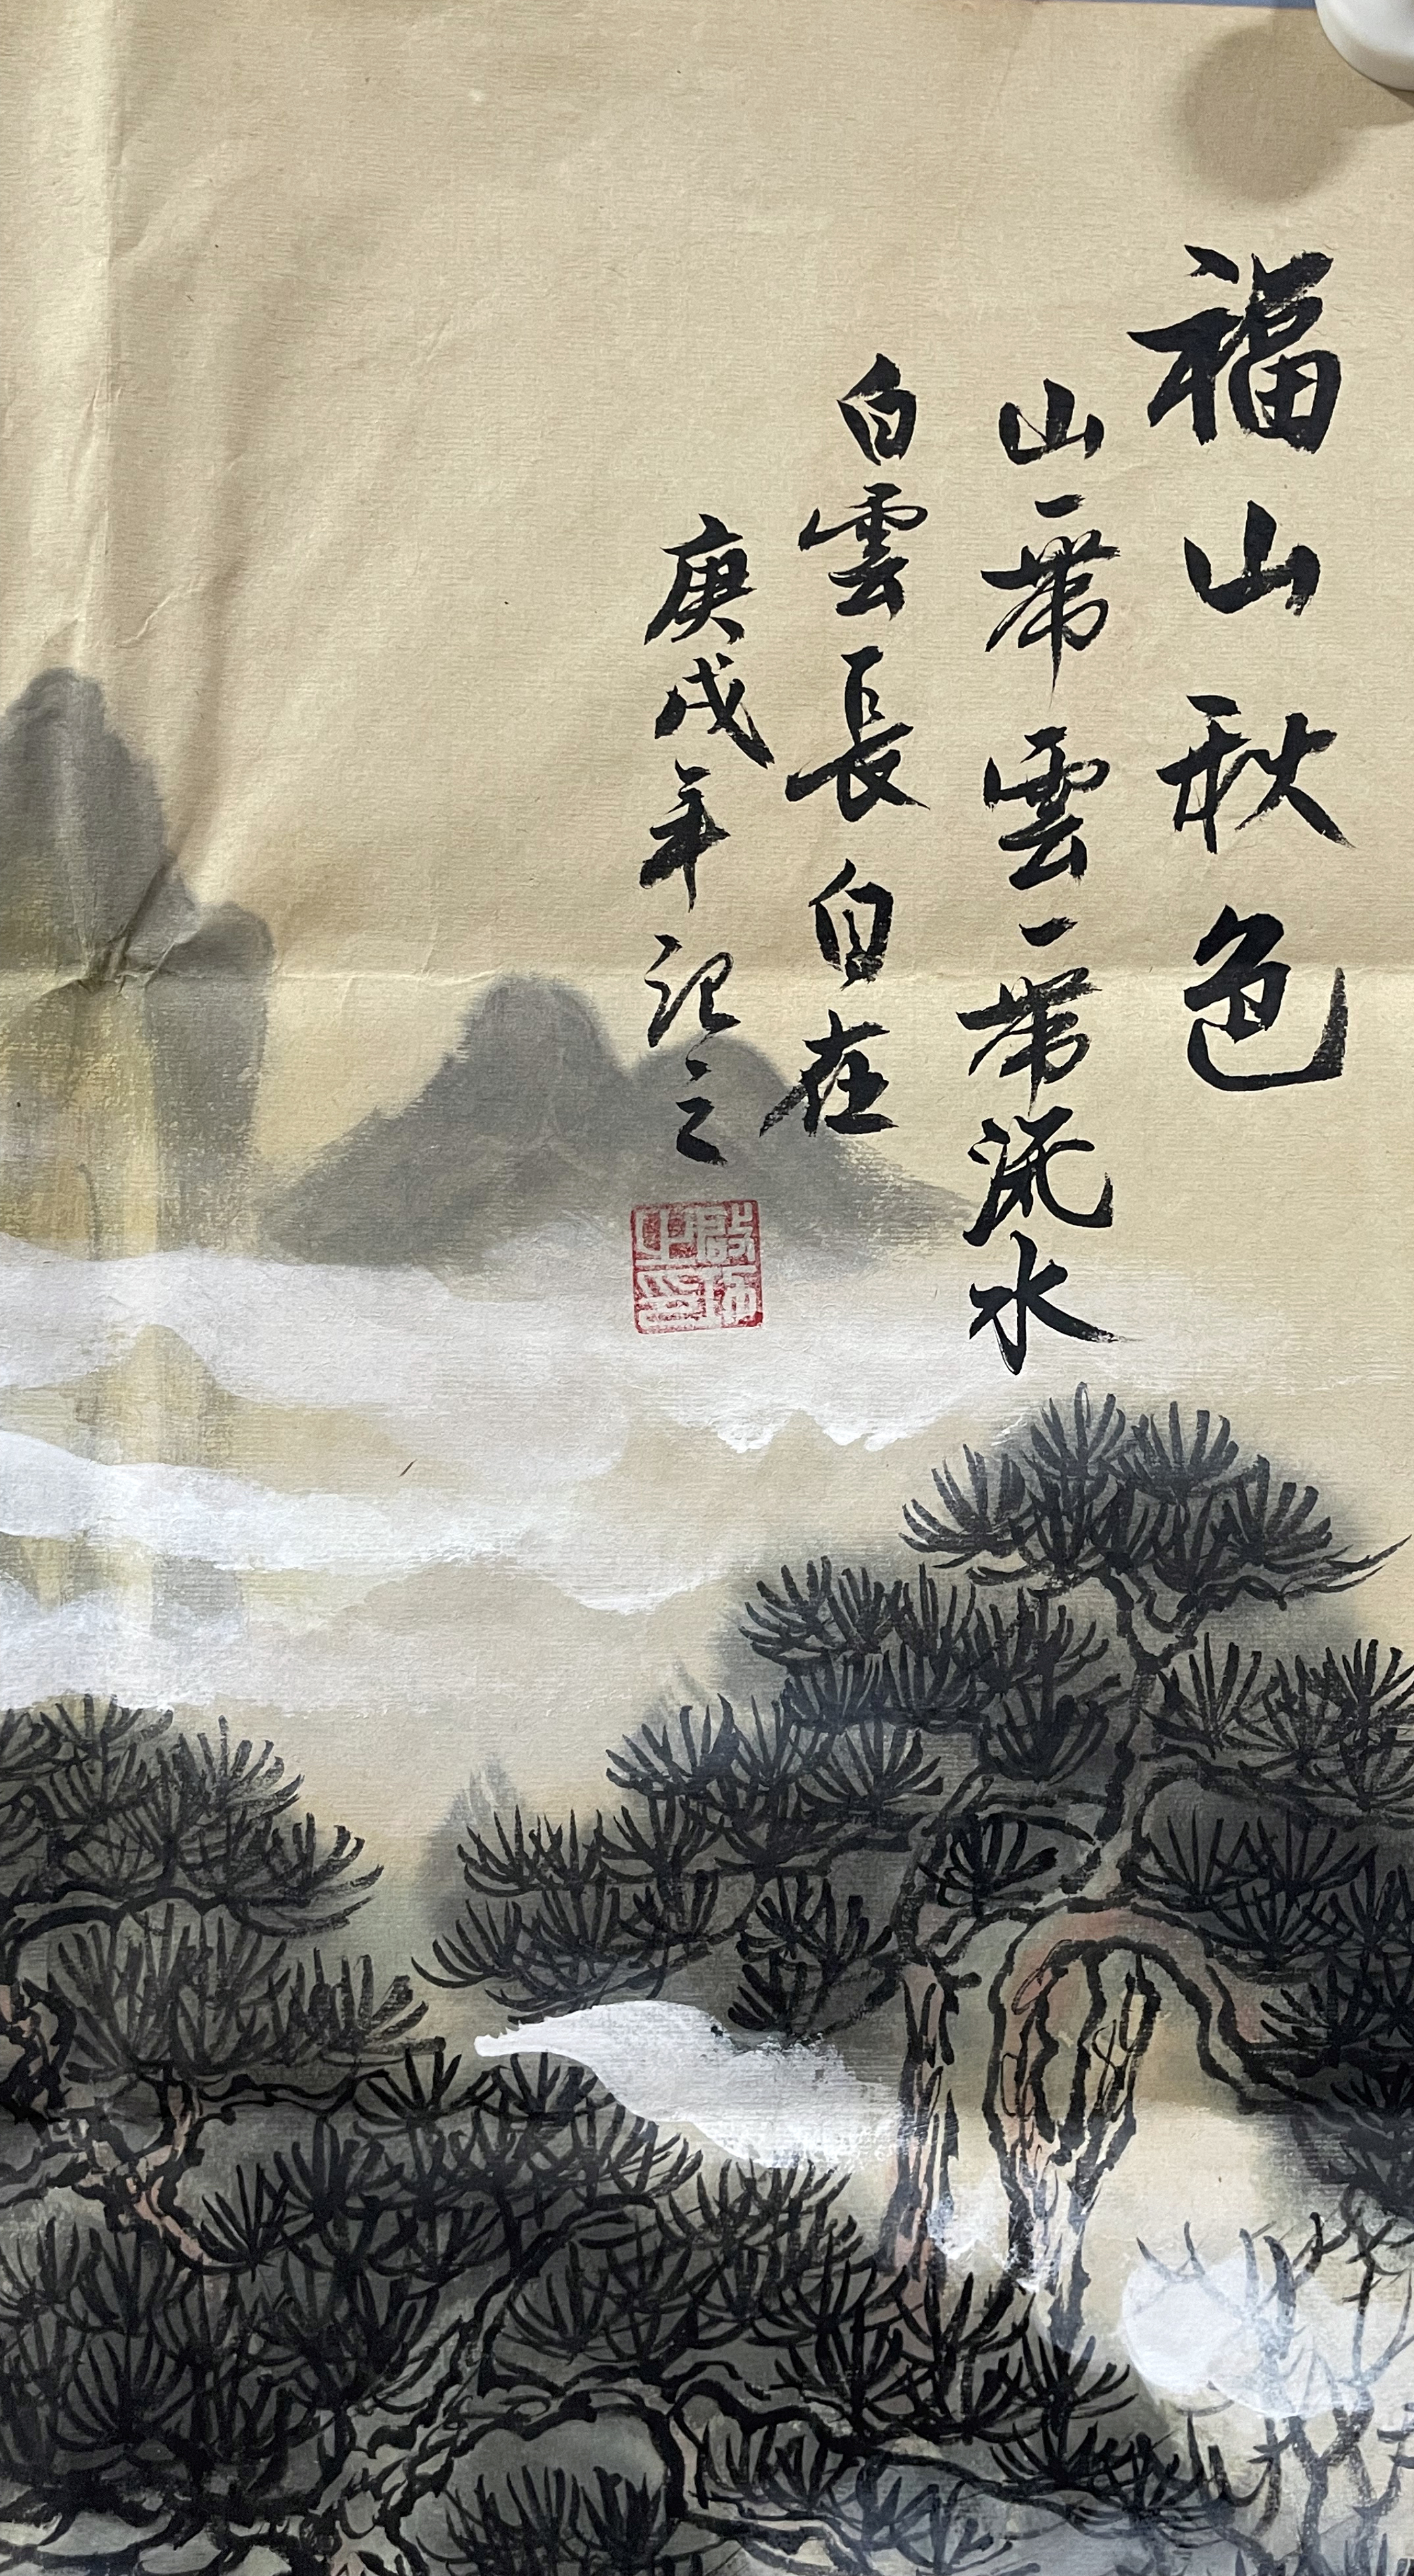 福山秋色
山一帶雲一帶流水
白雲長自在
庚戌年記之